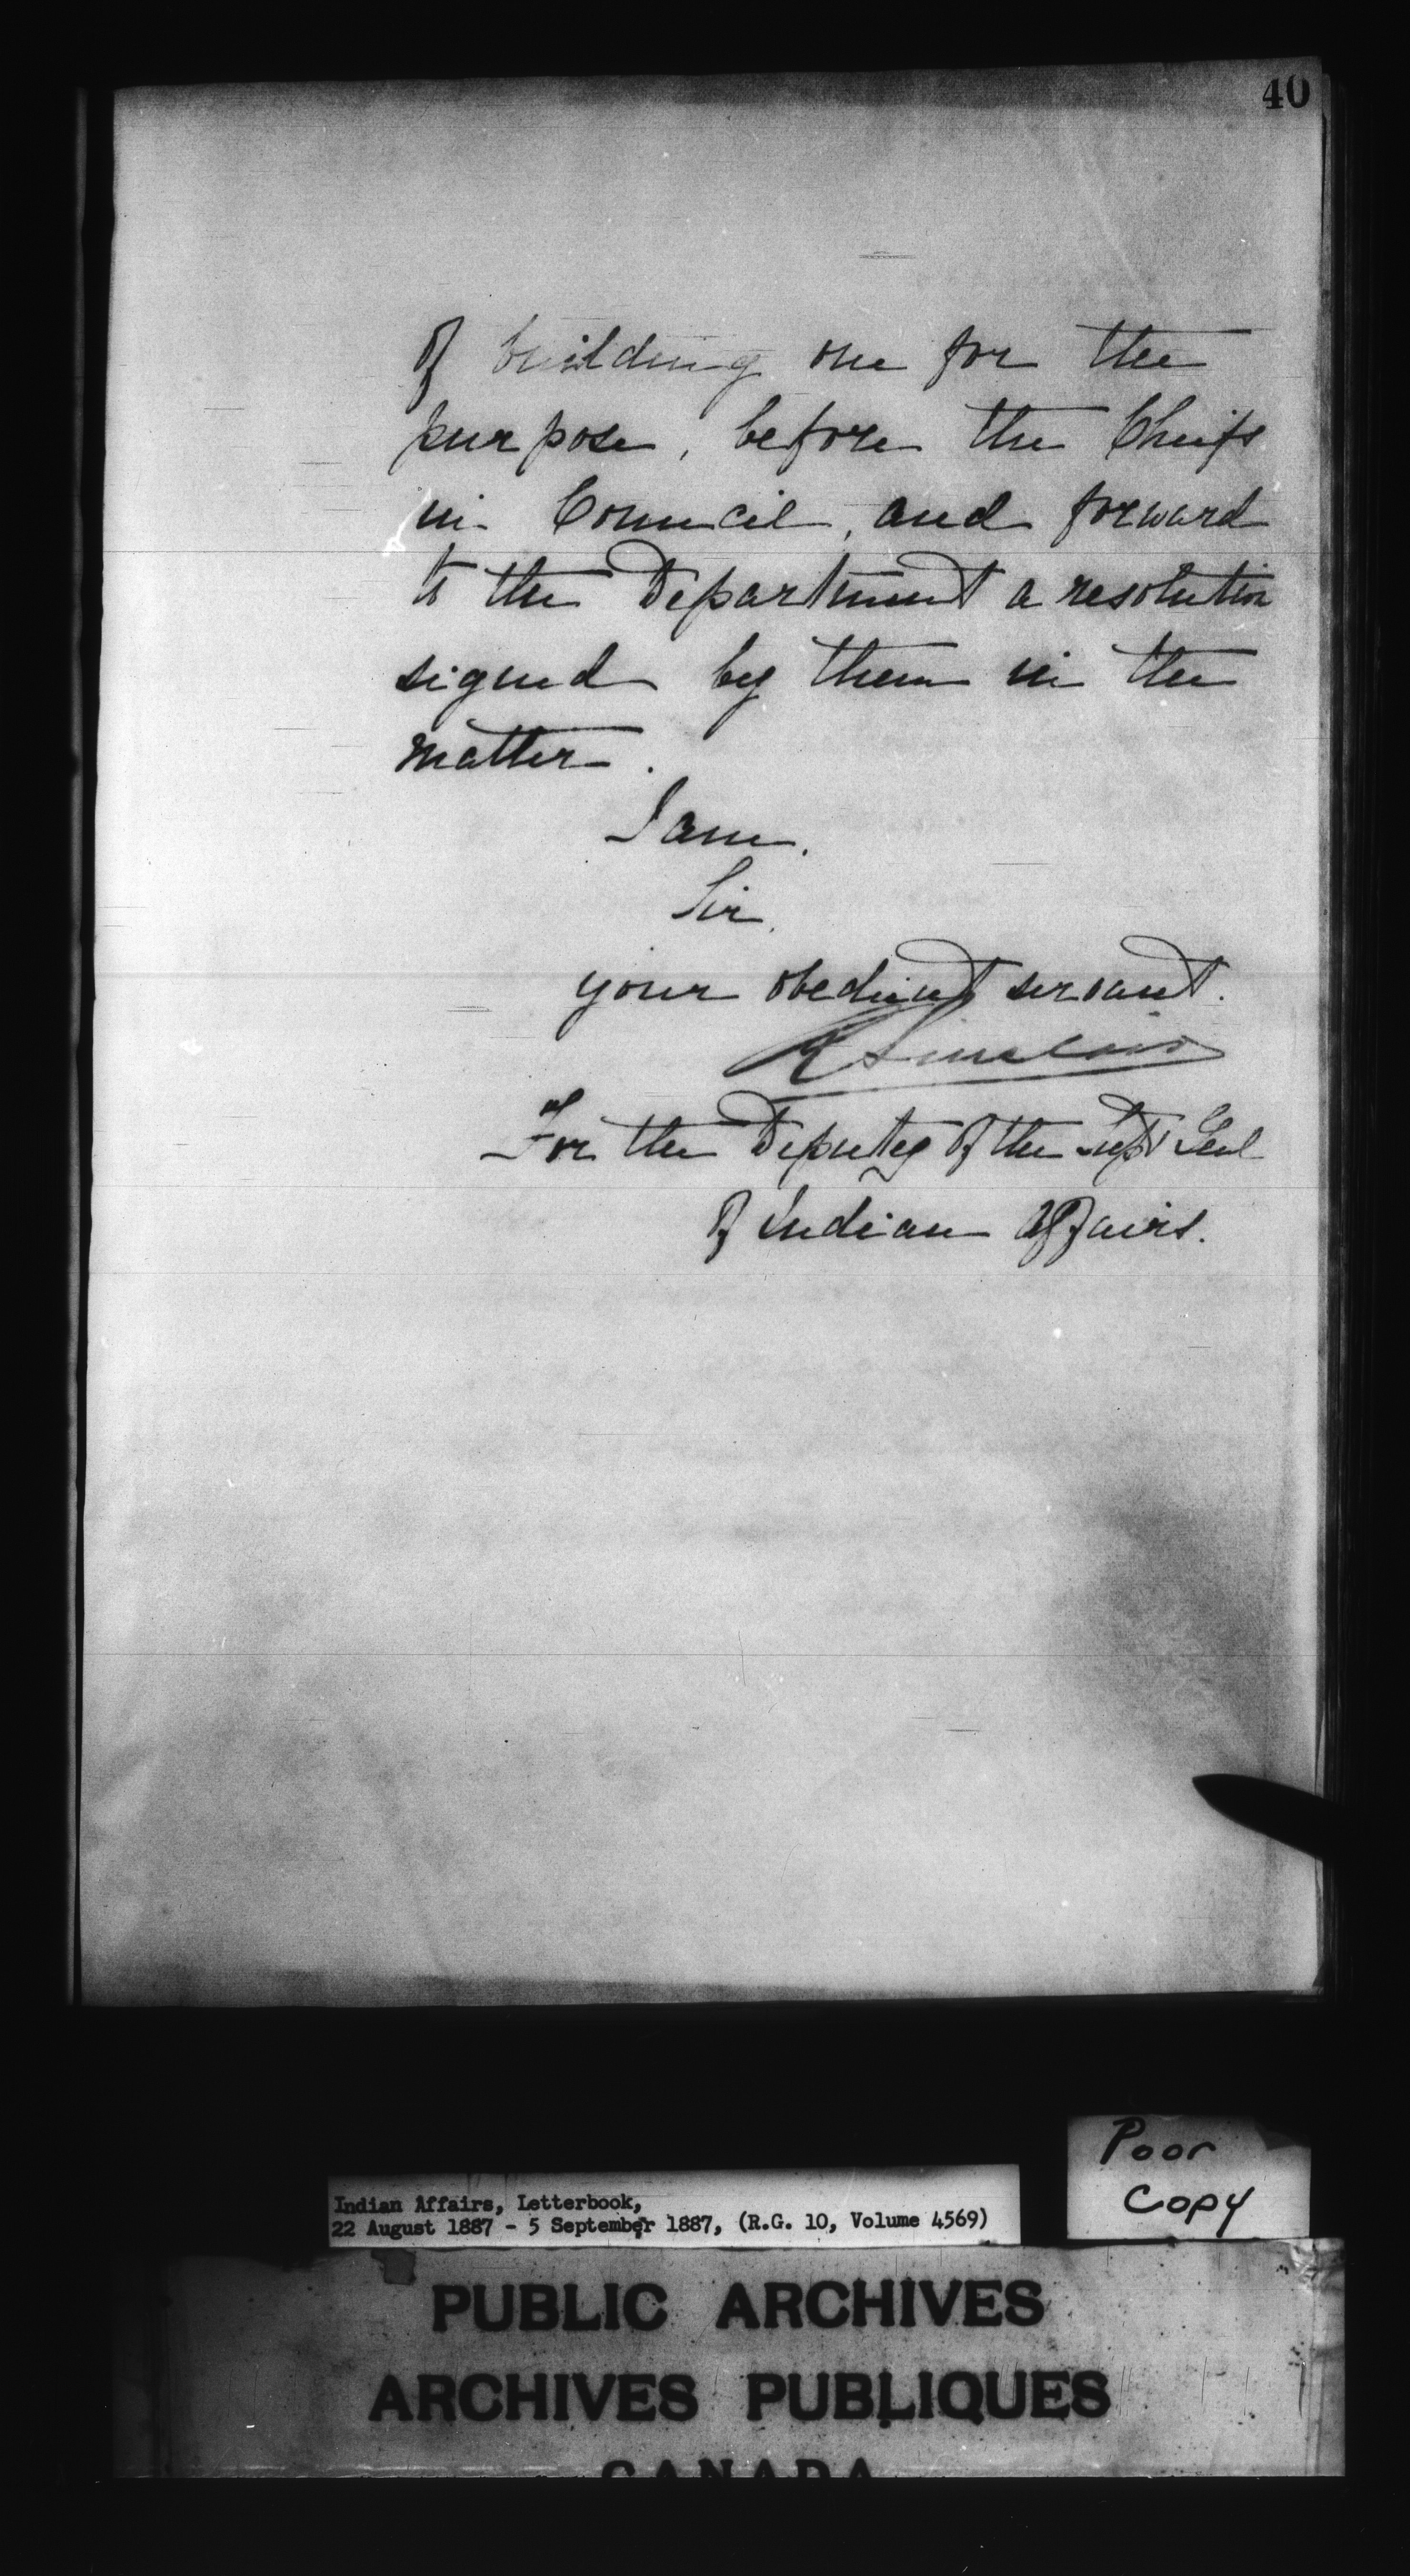 40
of building one for the
purpose, before the Chiefs
in Council, and forward
to the Department a resolution
signed by them in the
matter.
I am,
Sir,
your obedient servant.
R Sinclair
For the Deputy of the Supt Genl
of Indian Affairs.
Poor
Copy
Indian Affairs, Letterbook,
22 August 1887 - 5 September 1887, (R.G. 10, Volume 4569)
PUBLIC ARCHIVES
ARCHIVES PUBLIQUES
CANADA